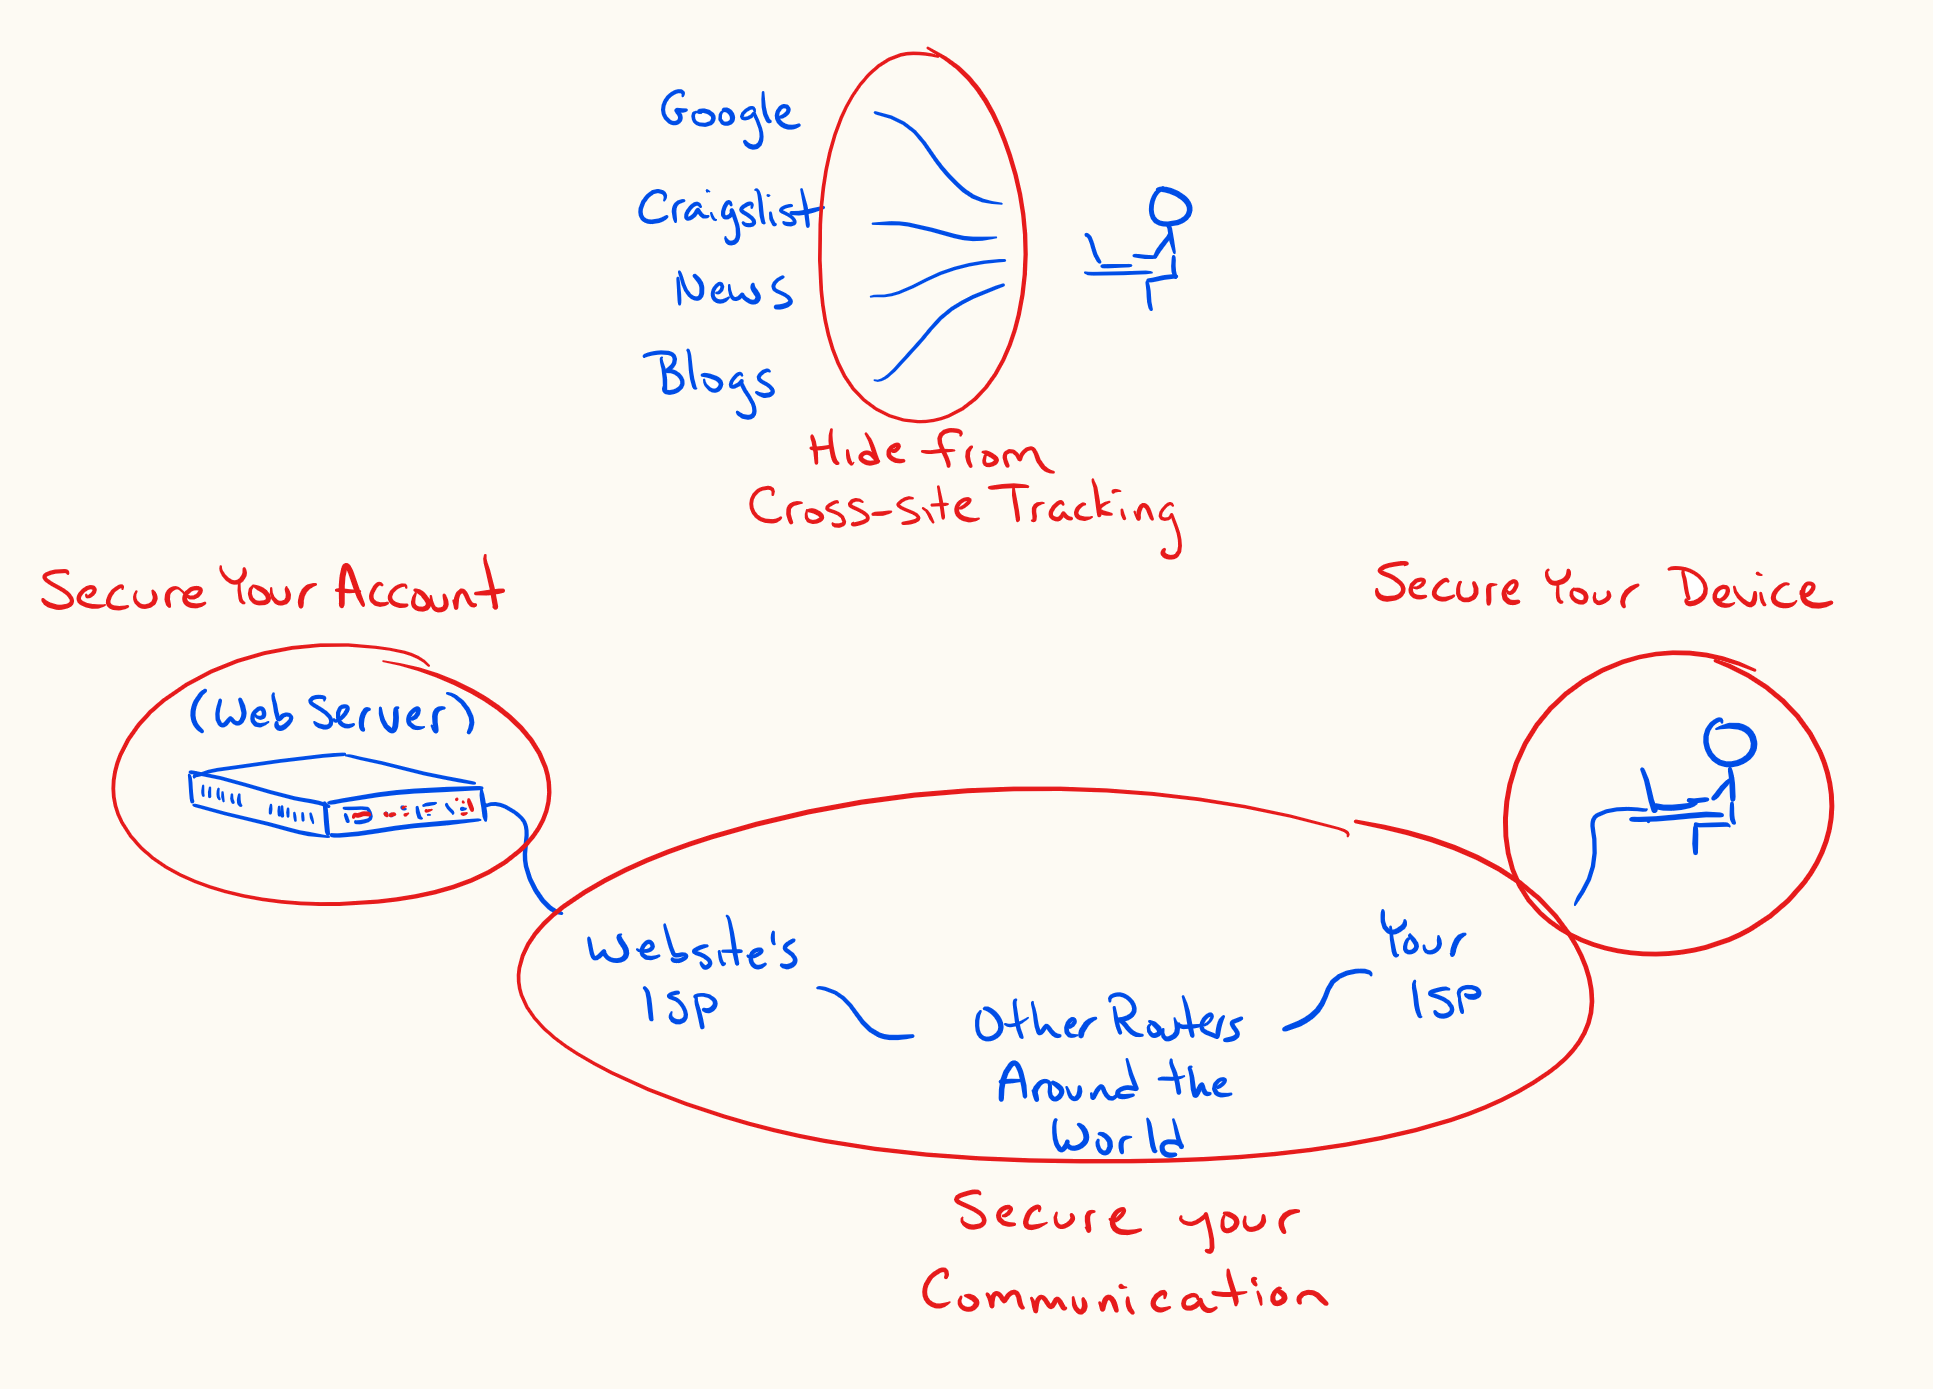 Google
Craigslist
News
Blogs
Hide from
Cross-site Tracking
Secure Your Account
(Web Server)
Secure Your Device
Website's
ISP
Other Routers
Around the
World
Your
ISP
Secure your
Communication